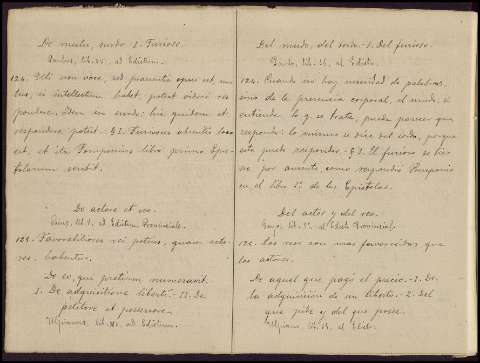 De muto, surdo 1. Furioso.
Paulus, lib. ad Edictum.
124. Ubi non voce, sed praesentia opus est, mu-
tus, si intellectum habet, potest videri res-
pondere. Idem in surdo: hic quidem et
respondere potest. - § 1. Furiosus absentis loco
est, et ita Pomponius libro primo Epis-
tolarum scribit.
De actore et reo.
Gaius, lib. ad Edictum Provinciale.
125. Favorabiliores rei potius, quam acto-
res habentur.
De eo, qui pretium numeravit.
1. De adquisitione liberti. - II. De
petitore et possessore.
Ulpianus, lib. ad Edictum.
Del mudo, del sordo. - 1. Del furioso.
Paulo, lib. al Edicto.
124. Cuando no hay necesidad de palabras,
sino de la presencia corporal, el mudo, si
entiende lo q se trata, puede parecer que
responde: lo mismo se dice del sordo, porque
este puede responder. - § 1. El furioso se tie-
ne por ausente, como respondió Pomponio
en el libro 1º de las Epístolas.
Del actor y del reo.
Gayo, lib. al Edicto Provincial.
los reos son mas favorecidos que
los actores.
De aquel que pagó el precio. - 1. De
la adquisicion de un liberto. - 2. Del
que pide y del que posee.
Ulpiano, lib. al Edicto.